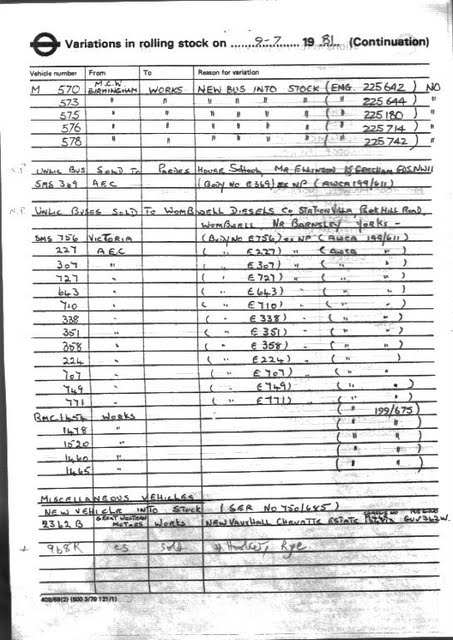 Variations in rolling stock on 9-7 19 81 (Continuation)
Vehicle number From To Reason for variation
M 570 M.C.W. BIRMINGHAM WORKS NEW BUS INTO STOCK (ENG. 225642) NO
573 " " " " " " ( " 225644) "
575 " " " " " " ( " 225180) "
576 " " " " " " ( " 225714) "
578 " " " " " " ( " 225742) "
N.P. UNLIC BUS SOLD TO PARDES HOUSE SCHOOL, MR ELLINSON 15 GRESHAM GDS. NW11
SMS 369 AEC (BODY NO E369) EX NP (AWCA 199/611)
N.P. UNLIC BUSES SOLD TO WOMBWELL DIESELS CO STATION VILLA, PARK HILL ROAD,
WOMBWELL, NR BARNSLEY YORKS -
SMS 756 VICTORIA (BODY NO E756) EX NP (AWCA 199/611)
227 AEC ( " E227) " (AWCA " )
307 " ( " E307) " ( " " )
727 " ( " E727) " ( " " )
643 " ( " E643) " ( " " )
710 " ( " E710) " ( " " )
338 " ( " E338) " ( " " )
351 " ( " E351) " ( " " )
358 " ( " E358) " ( " " )
224 " ( " E224) " ( " " )
707 " ( " E707) " ( " " )
749 " ( " E749) ( " " )
771 " ( " E771) ( " " )
BMC 1454 WORKS ( " 199/675)
1478 " ( " " )
1520 " ( " " )
1460 " ( " " )
1465 " ( " " )
MISCELLANEOUS VEHICLES
NEW VEHICLE INTO STOCK (SER NO 750/685)
2362 B GREAT WESTERN MOTORS WORKS NEW VAUXHALL CHEVETTE ESTATE
+ 968K CS Sold Rye
408/69(2) (500 3/79 121/1)